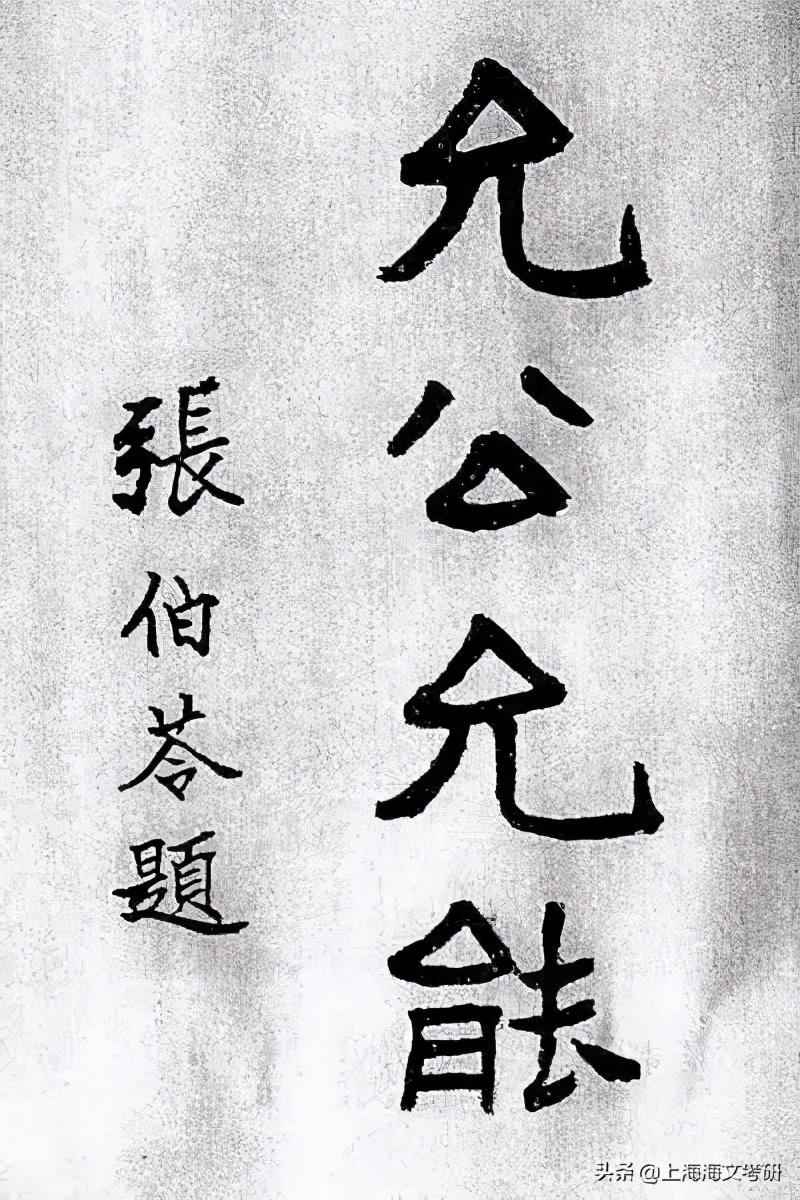 允公允能
張伯苓題
头条 @上海海文考研